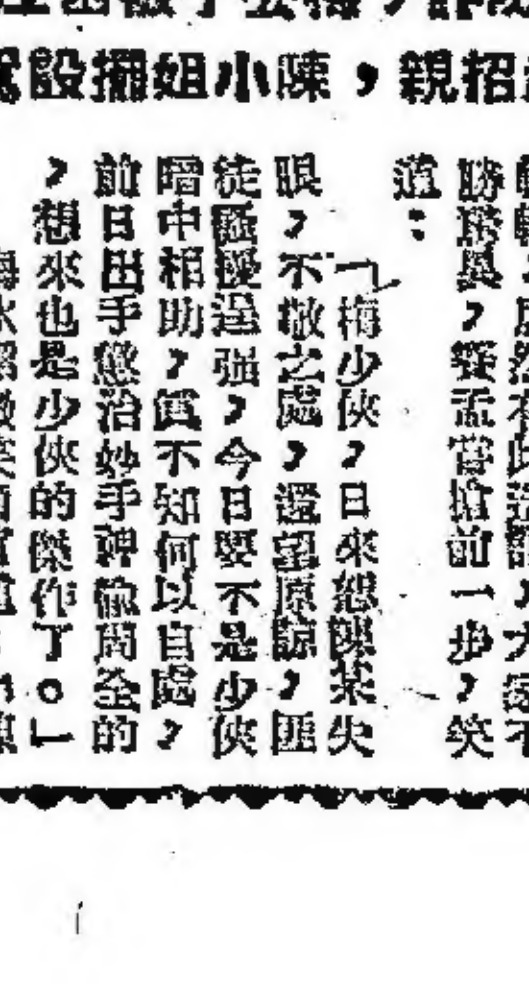 招親，陳小姐擺設
孟嘗搶前一步，笑
道：
「梅少俠，日來恕陳某失
眼，不敬之處，還望原諒，匪
徒騷擾逞强，今日要不是少俠
暗中相助，真不知何以自處，
前日出手懲治妙手神偷周全的
，想來也是少俠的傑作了。」